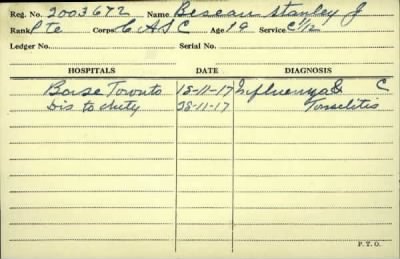 Reg. No. 2003672 Name Beseau Stanley J
Rank Pte Corps C A S C Age 19 Service C 1/12
Ledger No. Serial No.
HOSPITALS DATE DIAGNOSIS
Base Toronto 15-11-17 Influenza & C
Dis to duty 28-11-17 Tonselitis
P. T. O.